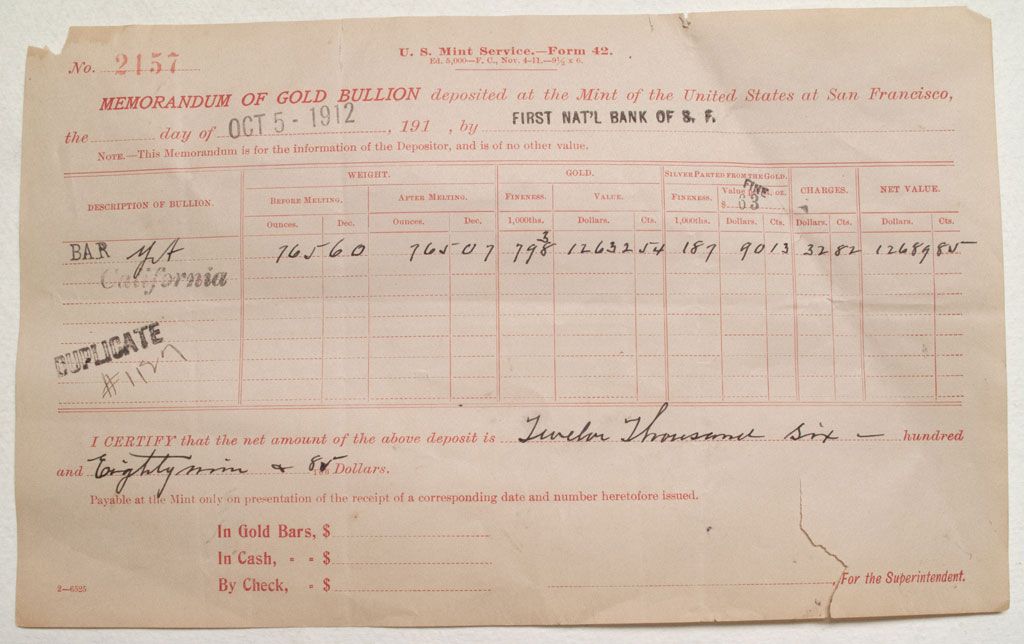 No. 2157
U. S. Mint Service.—Form 42.
Ed. 5,000—F. C., Nov. 4-11.—9½ x 6.
MEMORANDUM OF GOLD BULLION deposited at the Mint of the United States at San Francisco,
the day of OCT 5 - 1912, 191 , by FIRST NAT'L BANK OF S. F.
NOTE.—This Memorandum is for the information of the Depositor, and is of no other value.
DESCRIPTION OF BULLION. WEIGHT. GOLD. SILVER PARTED FROM THE GOLD. CHARGES. NET VALUE.
BEFORE MELTING. AFTER MELTING. FINENESS. VALUE. FINENESS. Value FINE OZ. $ 63
Ounces. Dec. Ounces. Dec. 1,000ths. Dollars. Cts. 1,000ths. Dollars. Cts. Dollars. Cts. Dollars. Cts.
BAR 765 60 765 07 798 3 12632 54 187 90 13 32 82 12689 85
California
DUPLICATE
#1127
I CERTIFY that the net amount of the above deposit is Twelve Thousand Six — hundred
and Eighty nine & 85 Dollars.
Payable at the Mint only on presentation of the receipt of a corresponding date and number heretofore issued.
In Gold Bars, $
In Cash, - - $
By Check, - $
2—6525
For the Superintendent.